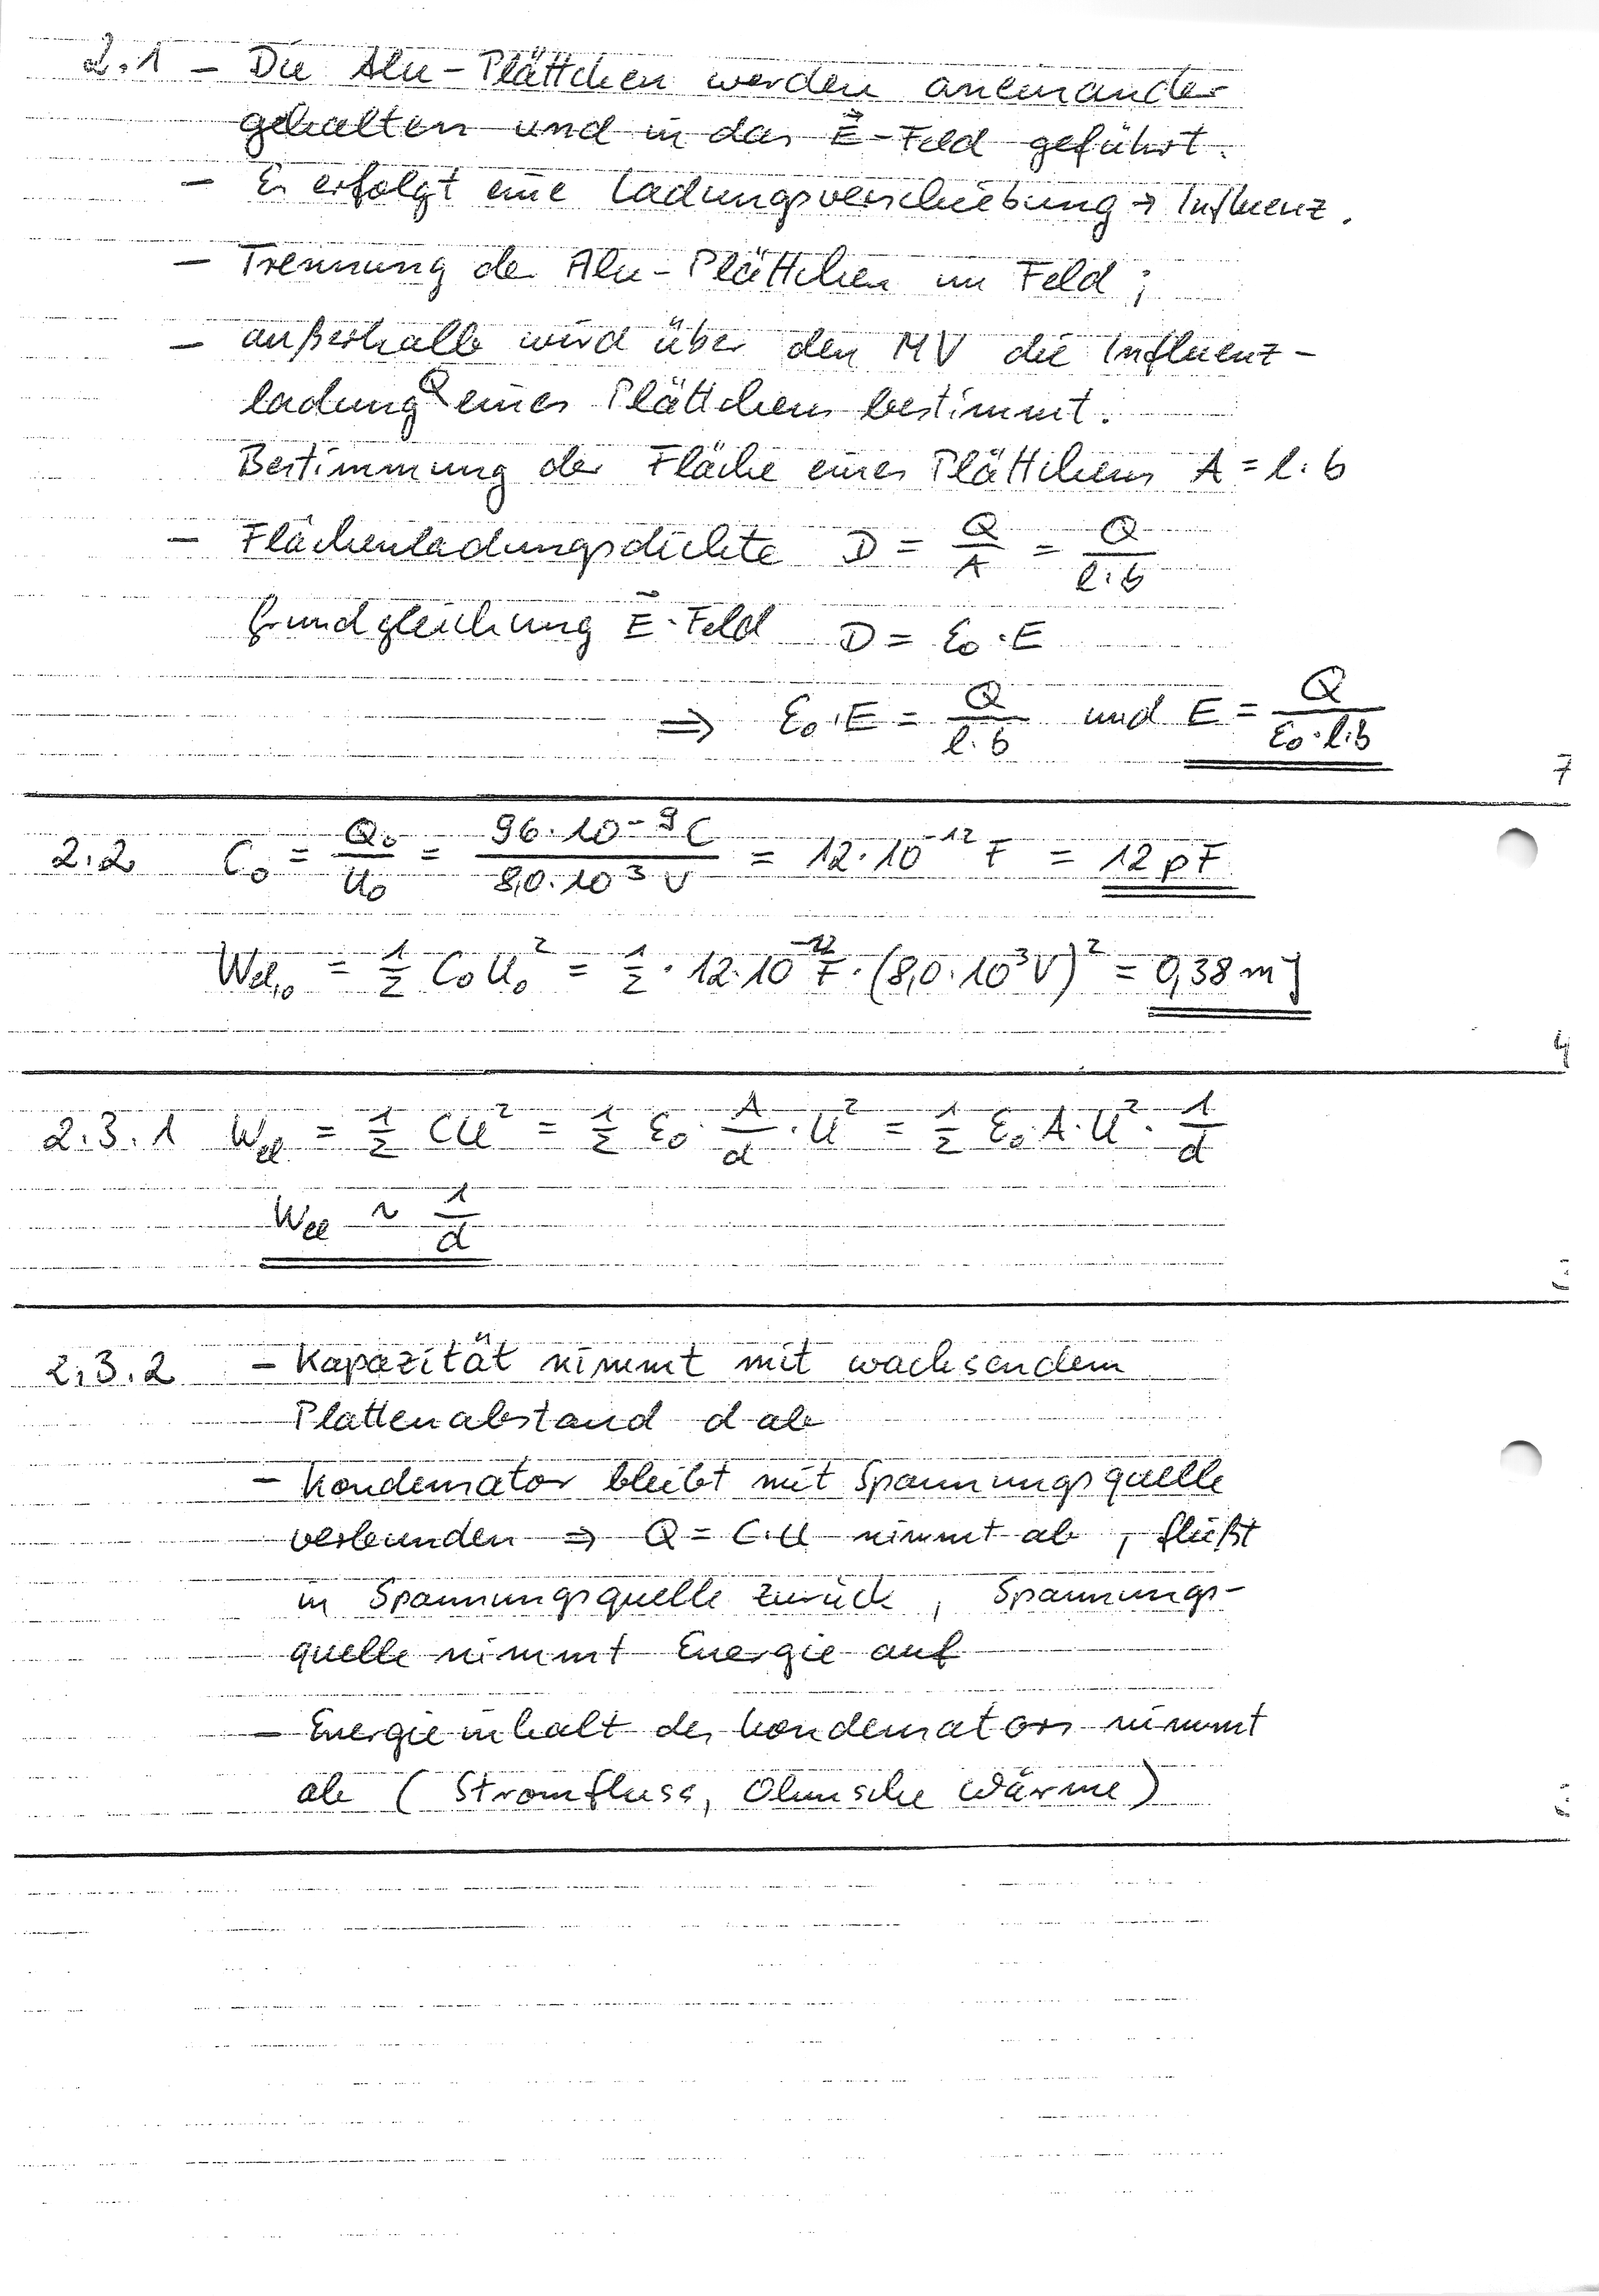 2.1 – Die Alu-Plättchen werden aneinander
gehalten und in das E⃗-Feld geführt.
– Es erfolgt eine Ladungsverschiebung → Influenz.
– Trennung der Alu-Plättchen im Feld ;
– außerhalb wird über den MV die Influenz-
ladung Q eines Plättchens bestimmt.
Bestimmung der Fläche eines Plättchens A = l·b
– Flächenladungsdichte D = Q/A = Q/(l·b)
Grundgleichung E⃗-Feld D = ε₀·E
⇒ ε₀·E = Q/(l·b) und E = Q/(ε₀·l·b)
7
2.2 C₀ = Q₀/U₀ = 96·10⁻⁹C / 8,0·10³V = 12·10⁻¹² F = 12 pF
Wel,0 = 1/2 C₀U₀² = 1/2 · 12·10⁻¹² F · (8,0·10³V)² = 0,38 mJ
4
2.3.1 Wel = 1/2 CU² = 1/2 ε₀ · A/d · U² = 1/2 ε₀·A·U² · 1/d
Wel ~ 1/d
2.3.2 – Kapazität nimmt mit wachsendem
Plattenabstand d ab
– Kondensator bleibt mit Spannungsquelle
verbunden ⇒ Q = C·U nimmt ab , fließt
in Spannungsquelle zurück , Spannungs-
quelle nimmt Energie auf
– Energieinhalt des Kondensators nimmt
ab ( Stromfluss, Ohmsche Wärme )